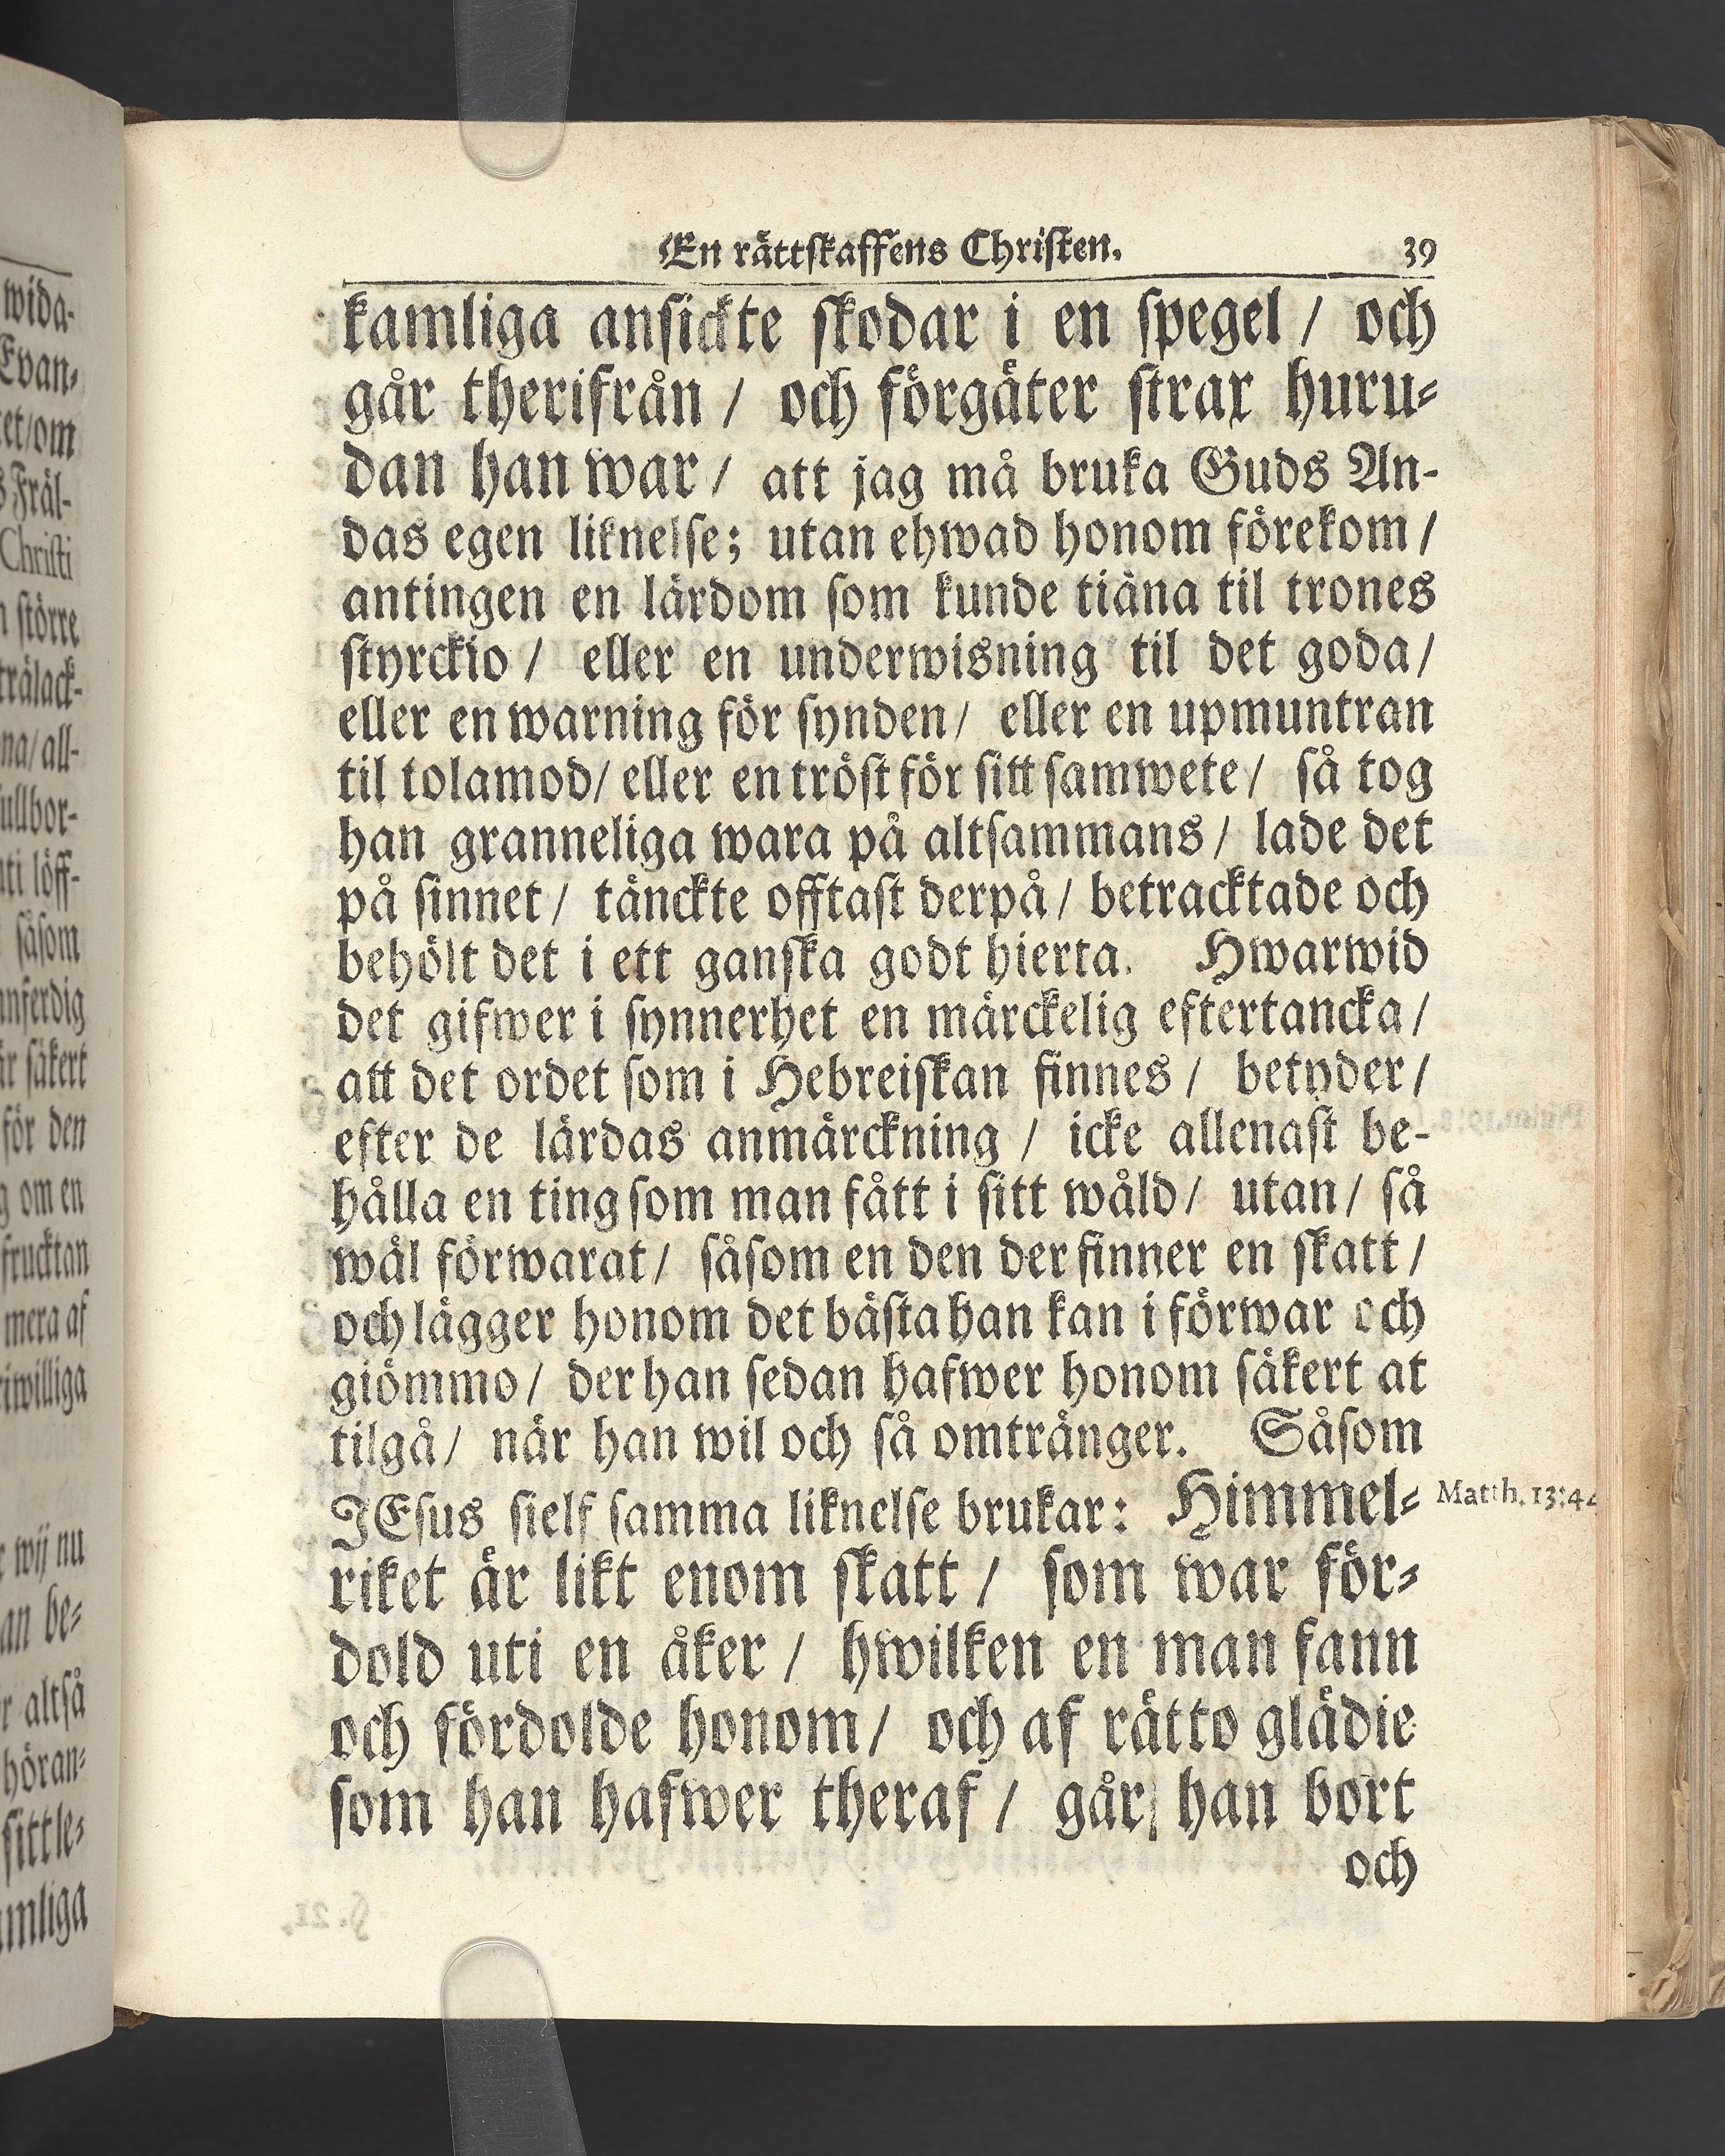 En rättskaffens Christen. 39
kamliga ansickte skodar i en spegel / och
går therifrån / och förgäter strax huru-
dan han war / att jag må bruka Guds An-
das egen liknelse; utan ehwad honom förekom /
antingen en lärdom som kunde tiäna til trones
styrckio / eller en underwisning til det goda /
eller en warning för synden / eller en upmuntran
til tolamod / eller en tröst för sitt samwete / så tog
han granneliga wara på altsammans / lade det
på sinnet / tänckte offtast derpå / betracktade och
behölt det i ett ganska godt hierta. Hwarwid
det gifwer i synnerhet en märckelig eftertancka /
att det ordet som i Hebreiskan finnes / betyder /
efter de lärdas anmärckning / icke allenast be-
hålla en ting som man fått i sitt wåld / utan / så
wäl förwarat / såsom en den der finner en skatt /
och lägger honom det bästa han kan i förwar och
giömmo / der han sedan hafwer honom säkert at
tilgå / när han wil och så omtränger. Såsom
JEsus sielf samma liknelse brukar: Himmel-
Matth. 13:44
riket är likt enom skatt / som war för-
dold uti en åker / hwilken en man fann
och fördolde honom / och af rätto glädie
som han hafwer theraf / går han bort
och
wida-
Evan-
et/om
Fräl-
Christi
större
trälack-
na/all-
ullbor-
ti löff-
såsom
nferdig
är säkert
för den
om en
frucktan
mera af
iwilliga
wij nu
an be-
altså
höran-
sittle-
mliga